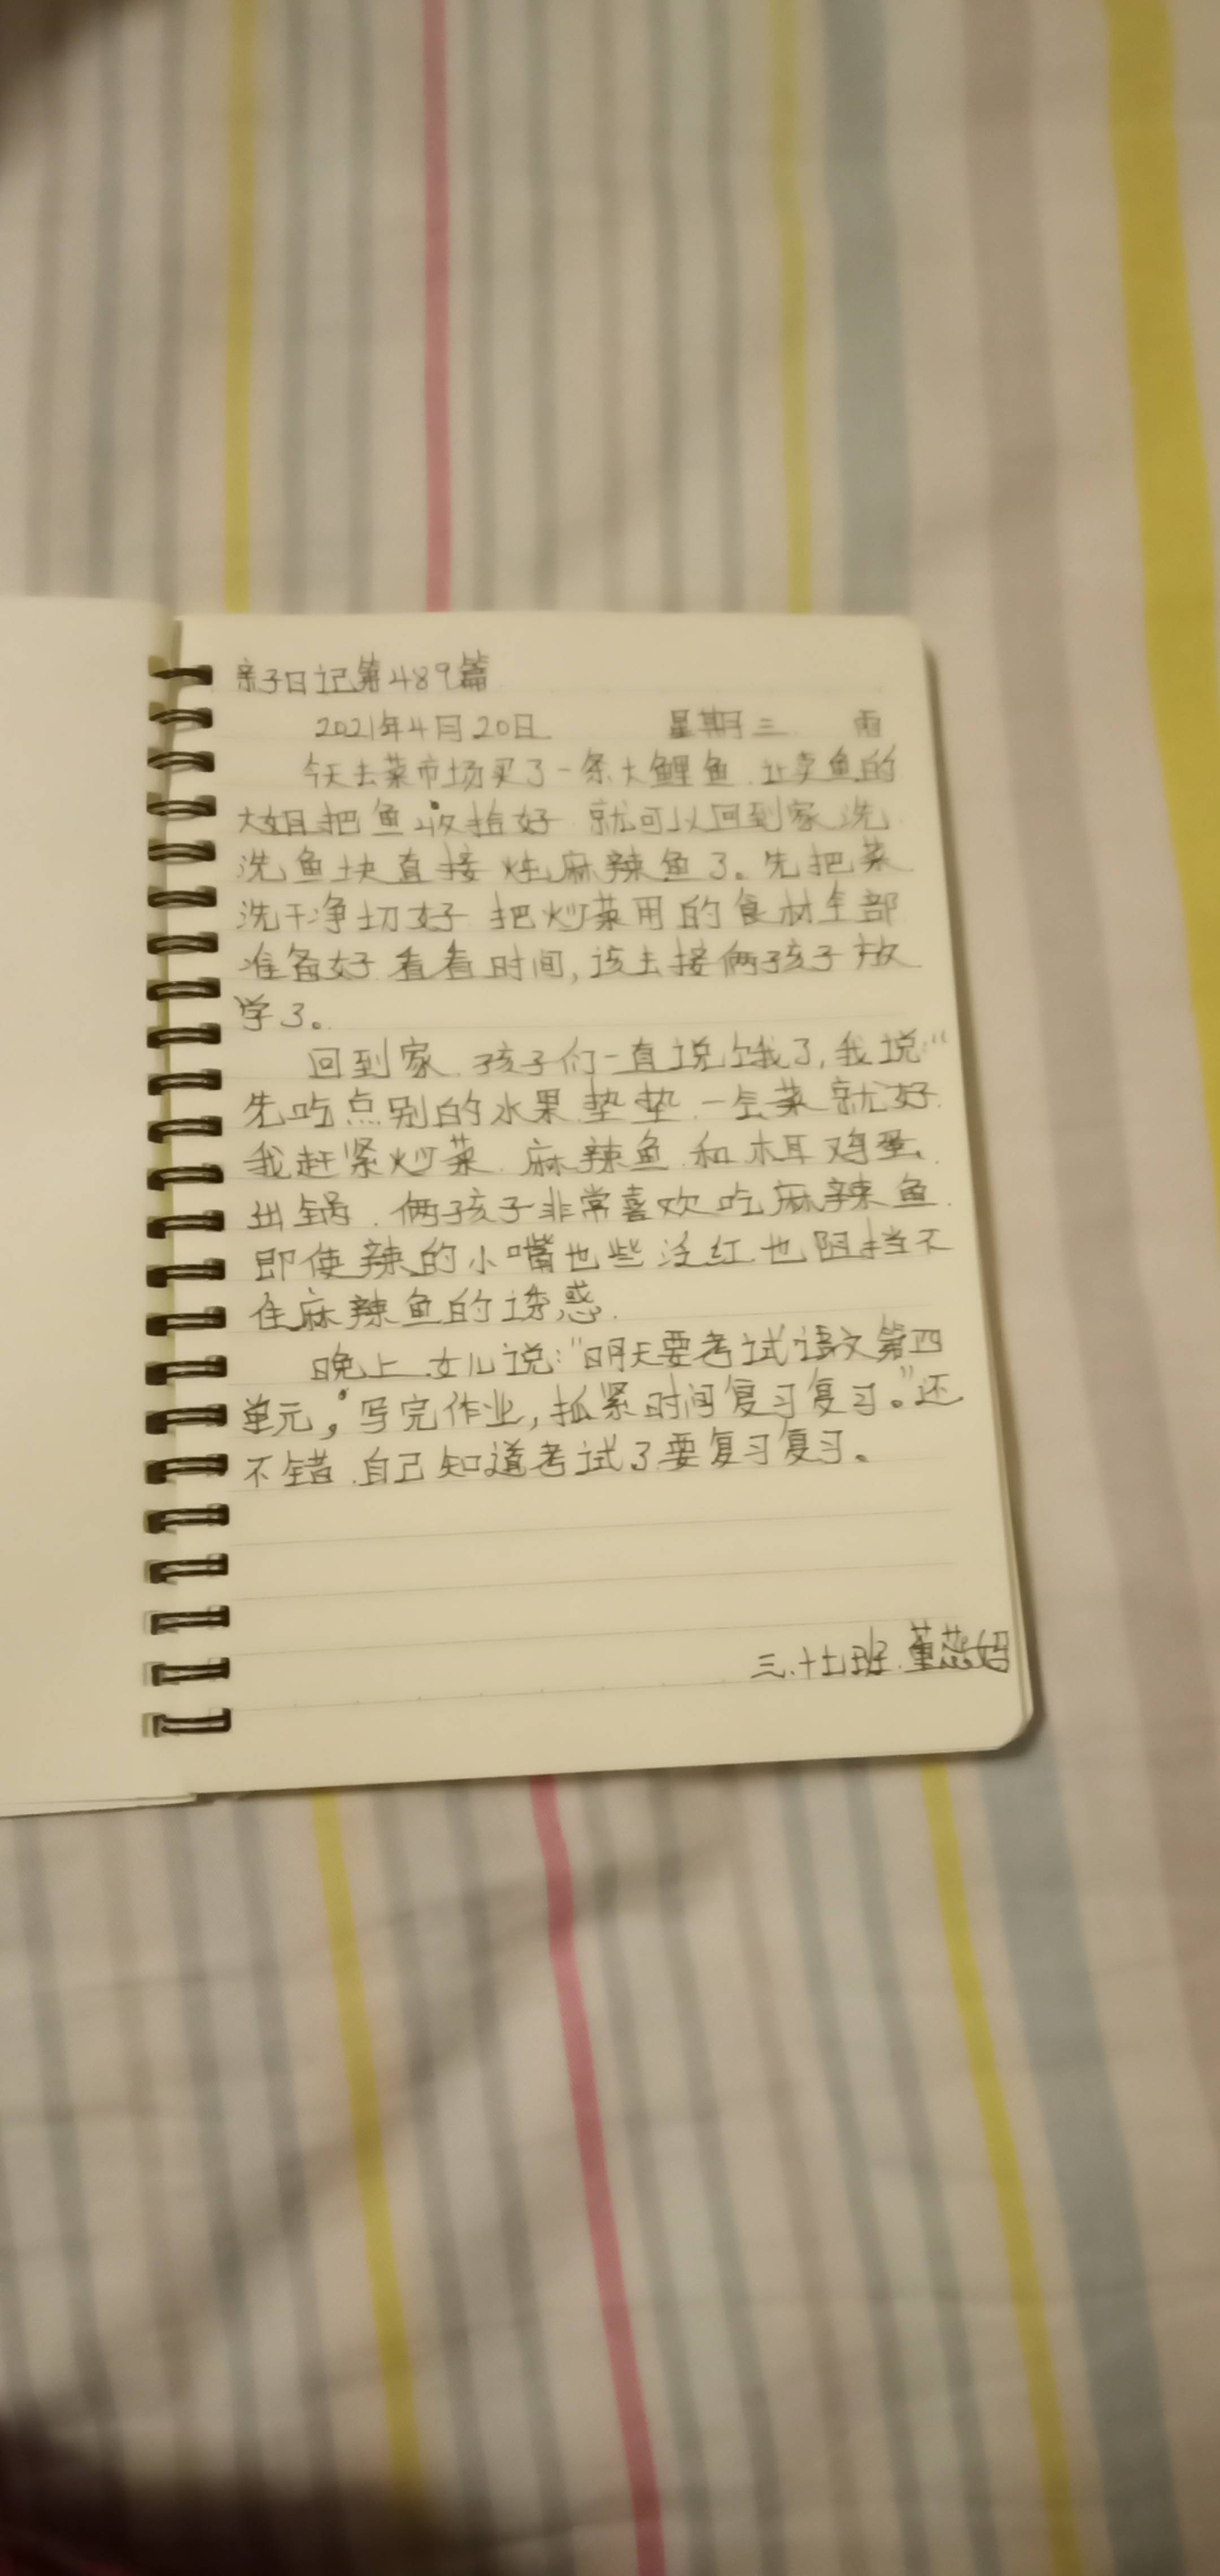 亲子日记第489篇
2021年4月20日 星期三 雨
今天去菜市场买了一条大鲤鱼.让卖鱼的
大姐把鱼收拾好 就可以回到家洗
洗鱼块直接炖麻辣鱼了。先把菜
洗干净切好 把炒菜用的食材全部
准备好.看看时间,该去接俩孩子放
学了。
回到家.孩子们一直说饿了,我说“
先吃点别的水果垫垫.一会菜就好.
我赶紧炒菜.麻辣鱼和木耳鸡蛋.
出锅.俩孩子非常喜欢吃麻辣鱼.
即使辣的小嘴也些泛红.也阻挡不
住麻辣鱼的诱惑.
晚上.女儿说:“明天要考试语文第四
单元,写完作业,抓紧时间复习复习。”还
不错.自己知道考试了要复习复习。
三.十七班.董蕊妈